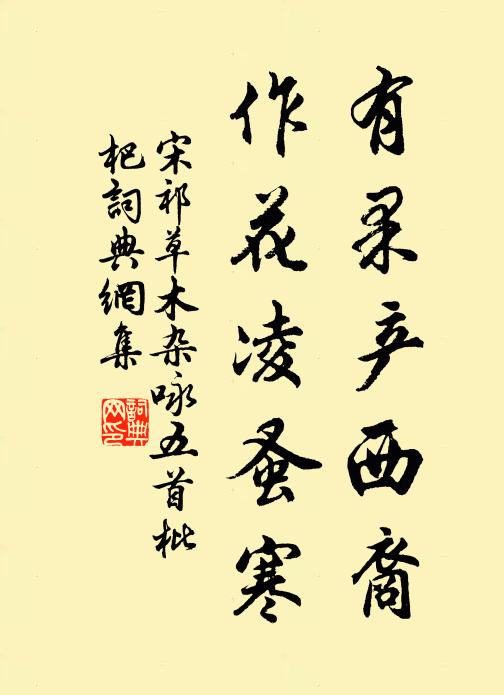 有果产西裔
作花凌蚤寒
宋祁草木杂咏五首枇
杷詞典網集
詞典
网印